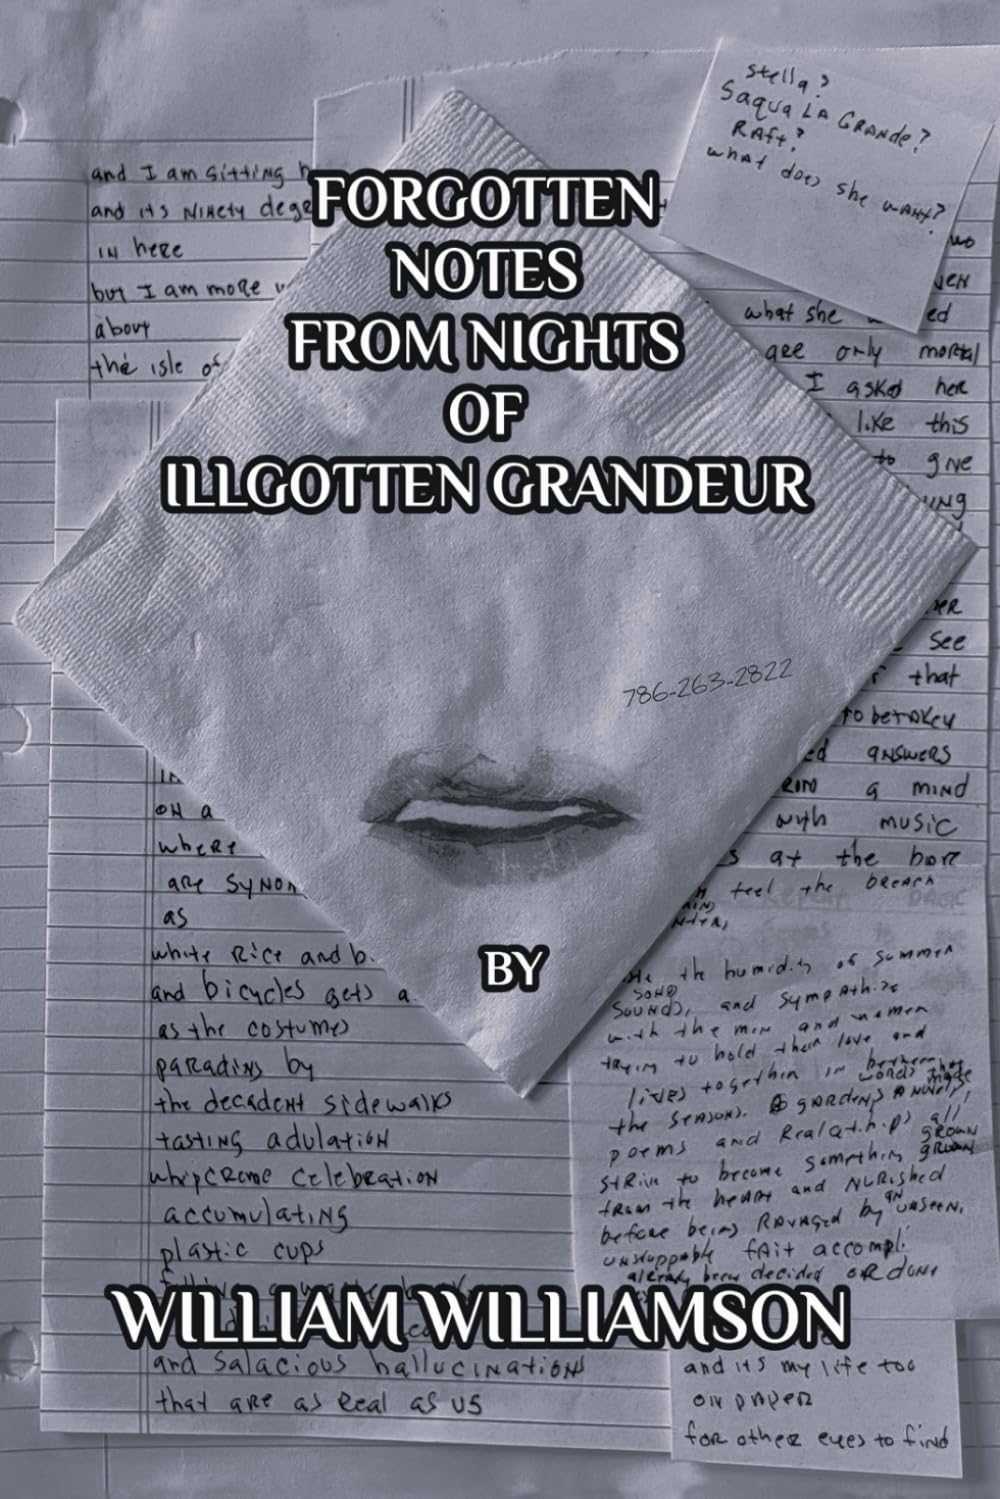 stella?
Saqua LA GRANDE?
RAft?
what does she want?
and I am sitting
and its NiNety dege
IN here
but I am more
about
the isle of
FORGOTTEN
NOTES
FROM NIGHTS
OF
ILLGOTTEN GRANDEUR
what she ed
are only mortal
I asked her
like this
to give
see
that
answers
a MIND
with music
at the bar
feel the BREACH
786-263-2822
ON a
where
are SYNON
as
white Rice and b
and bicycles gets a
as the costumes
parading by
the decadent sidewalks
tasting adulation
whipcreme celebration
accumulating
plastic cups
BY
the humidity of summer
SONG
SOUNDS, and sympathize
with the men and women
trying to hold their love and
lives together in between
words that made
the SEASONS. GARDENS & NOVELS,
poems and Relationships all
strive to become something GROWN
from the heart and NURished
before being RAVAGED by AN UNSEEN,
unstoppable fait accompli
already been decided OR done
WILLIAM WILLIAMSON
and salacious hallucinations
that are as Real as us
and its my life too
on paper
for other eyes to find